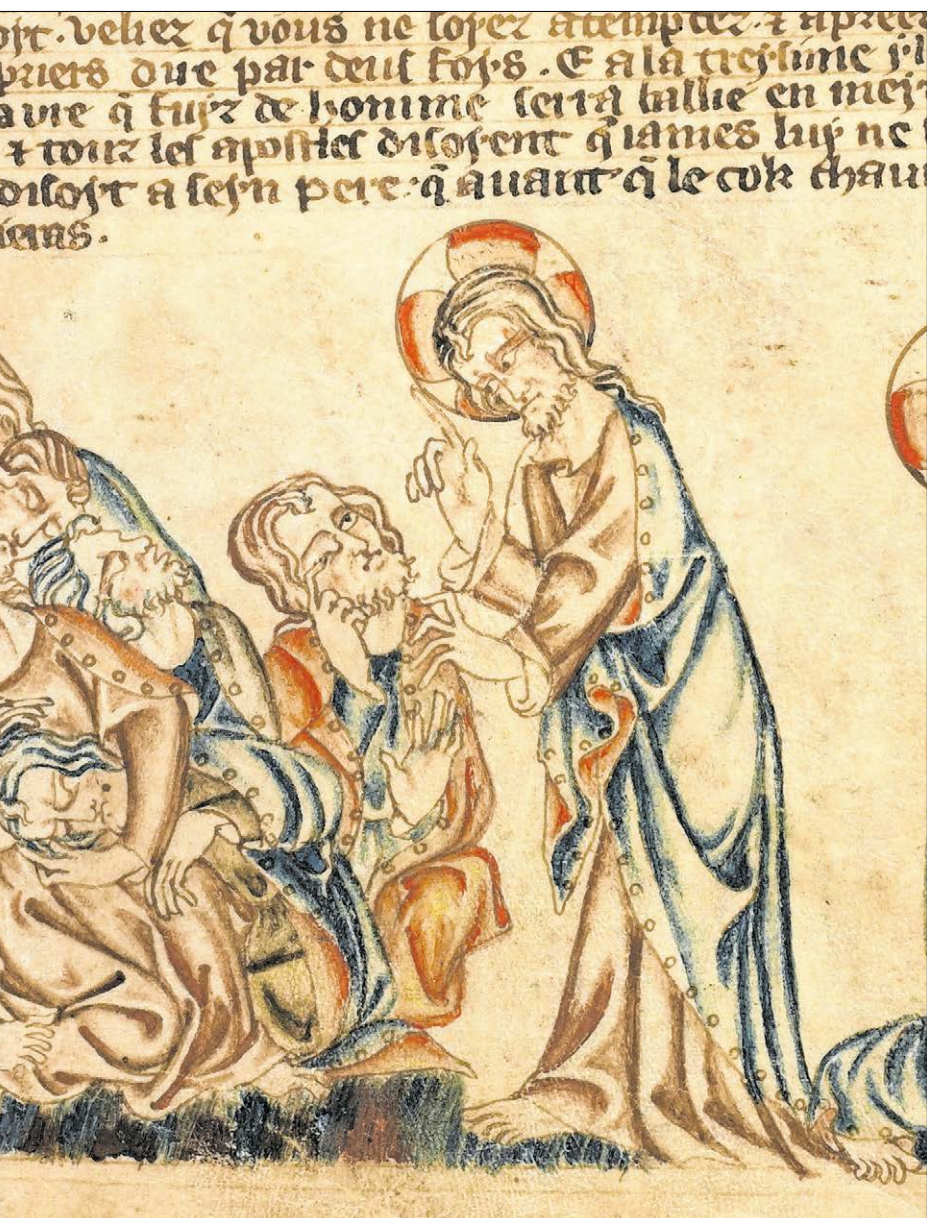 ort · veliez q̄ vous ne soyez atemptez · ⁊ apreer
priers due par deus foys . E a la treysime
avre q̄ fuiz de homme serra baillie en
⁊ touz les apostles disoyent q̄ iames luy ne
disoyt a seyn pere · q̄ avant q̄ le cok chaun
ieras .